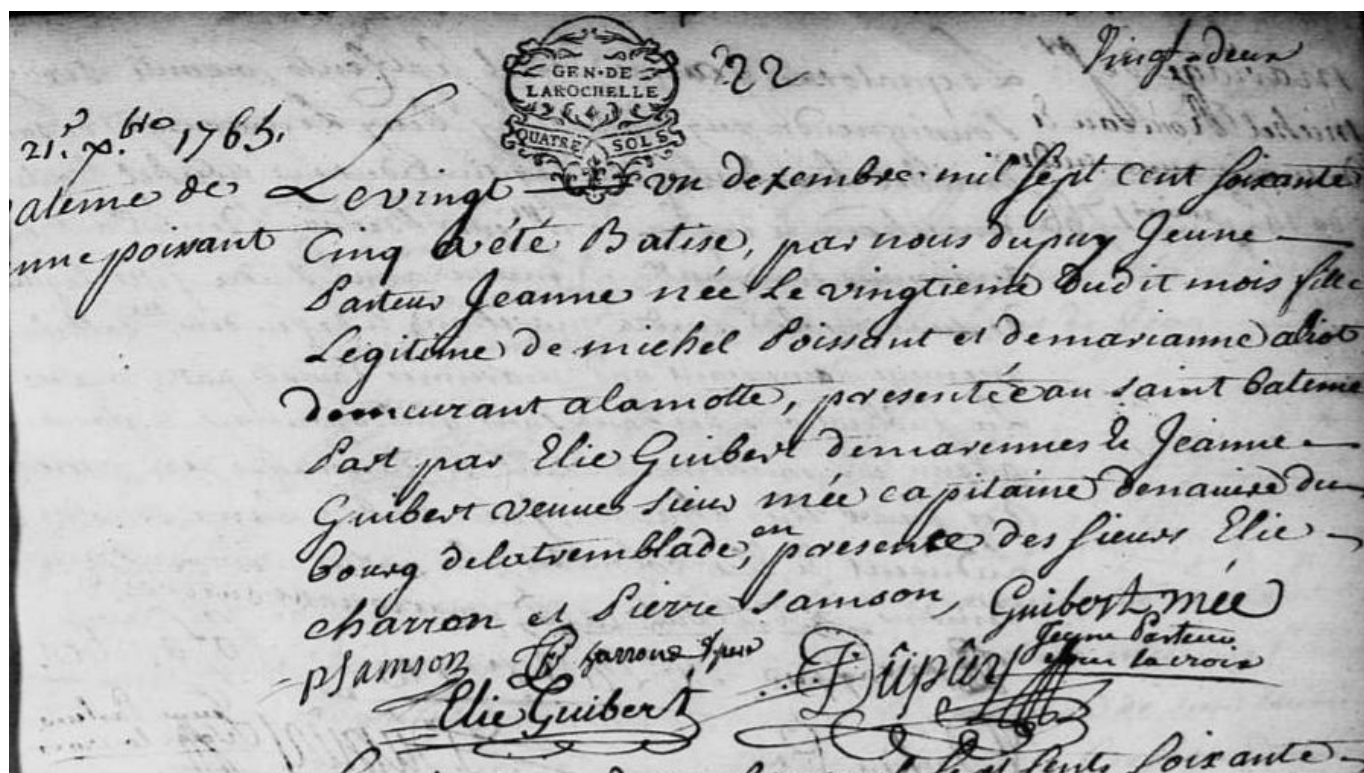 22
Vingt-deux
GEN·DE
LAROCHELLE
QUATRE SOLS
21.e x.bre 1765.
ateme de
nne poixant
Le vingt un dexembre mil sept cent soixante
Cinq a été Batisé, par nous dupuy Jeune
Pasteur Jeanne née Le vingtieme dudit mois fille
Légitime de michel Poissant et demarianne aliot
demeurant alamotte, presentée au saint bateme
Part par Elie Guibert demarennes & Jeanne
Guibert veuve sieur mée capitaine denavire du
bourg delatremblade, en presence des sieurs Elie
charron et Pierre Samson, Guibert mée
PSamson Charron
Elie Guibert
Dûpûy Jeune Pasteur